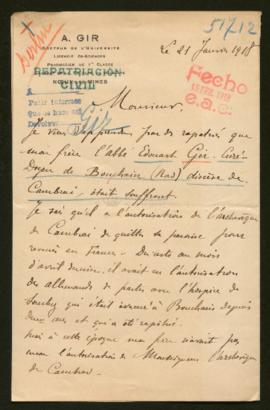 51712
A. GIR
DOCTEUR DE L'UNIVERSITÉ
LICENCIÉ ÈS-SCIENCES
PHARMACIEN DE 1re CLASSE
REPATRIACION
CIVIL
NŒUX-LES-MINES
Le 21 Janvier 1918
Fecho
e.a.c.
Gir
Monsieur,
Je viens d'apprendre par des rapatriés que
mon frère l'abbé Edouard Gir, Curé-
Doyen de Bouchain (Nord) diocèse de
Cambrai, était souffrant.
Je sais qu'il a l'autorisation de l'archevêque
de Cambrai de quitter sa paroisse pour
revenir en France. Du reste au mois
d'avril dernier, il avait eu l'autorisation
des allemands de partir avec l'hospice de
qui était évacué à Bouchain depuis
deux ans et qui a été rapatrié.
Mais à cette époque mon frère n'avait pas
encore l'autorisation de Monseigneur l'archevêque
de Cambrai.